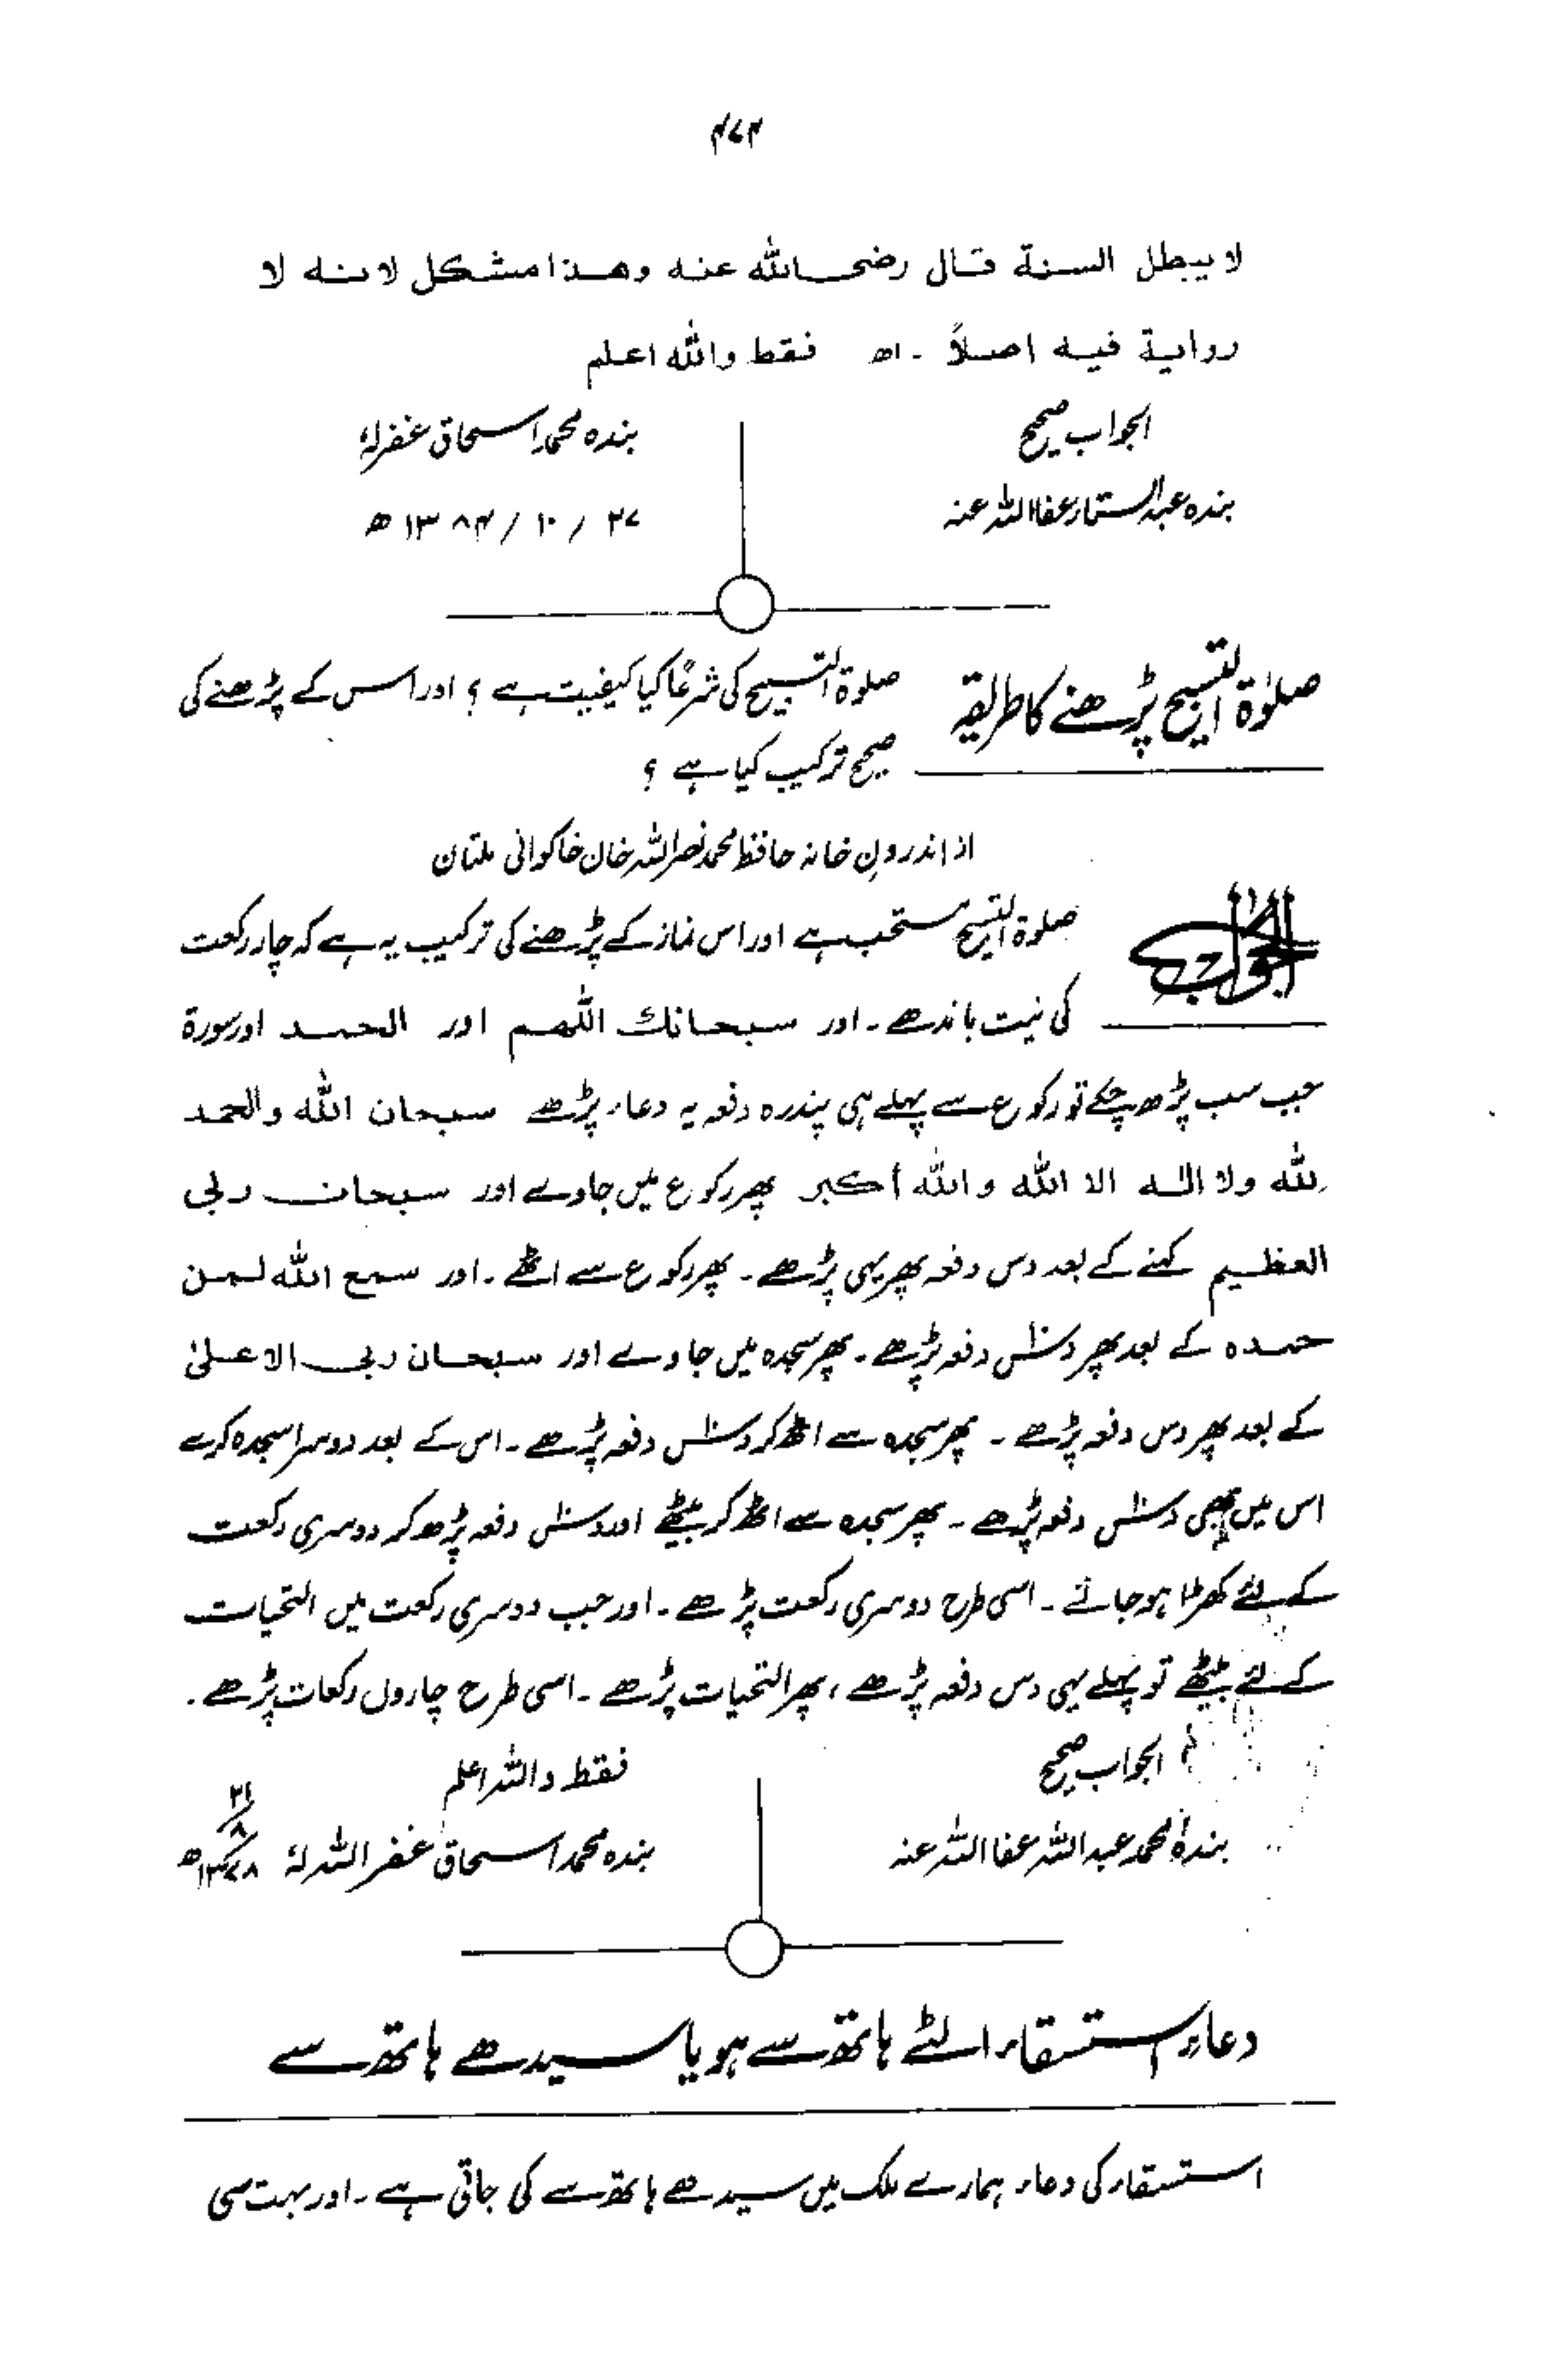 ۴۷۴
لا يبطل السنة قال رضی الله عنه وهذا مشكل لانه لا
رواية فيه اصلاً ۔ اھ فقط والله اعلم
الجواب صحیح
بندہ محمد اسحاق غفرلہٗ
بندہ عبدالستار عفا اللہ عنہ
۲۷ / ۱۰ / ۱۳۸۴ ھ
صلوٰۃ التسبیح پڑھنے کا طریقہ
صلوۃ التسبیح کی شرعًا کیا کیفیت ہے ؟ اور اس کے پڑھنے کی
صحیح ترکیب کیا ہے ؟
از اندرون خانہ حافظ محمد نصر اللہ خان خاکوانی ملتان
الجواب
صلوۃ التسبیح مستحب ہے اور اس نماز کے پڑھنے کی ترکیب یہ ہے کہ چار رکعت
کی نیت باندھے ۔ اور سبحانك اللهم اور الحمد اور سورۃ
جب سب پڑھ چکے تو رکوع سے پہلے ہی پندرہ دفعہ یہ دعاء پڑھے سبحان الله والحمد
لله ولا اله الا الله والله أكبر پھر رکوع میں جاوے اور سبحان ربی
العظیم کہنے کے بعد دس دفعہ پھر یہی پڑھے ۔ پھر رکوع سے اٹھے ۔ اور سمع الله لمن
حمدہ کے بعد پھر دس دفعہ پڑھے ۔ پھر سجدہ میں جاوے اور سبحان ربی الاعلیٰ
کے بعد پھر دس دفعہ پڑھے ۔ پھر سجدہ سے اٹھ کر دس دفعہ پڑھے ۔ اس کے بعد دوسرا سجدہ کرے
اس میں بھی دس دفعہ پڑھے ۔ پھر سجدہ سے اٹھ کر بیٹھے اور دس دفعہ پڑھ کر دوسری رکعت
کے لئے کھڑا ہو جائے ۔ اسی طرح دوسری رکعت پڑھے ۔ اور جب دوسری رکعت میں التحیات
کے لئے بیٹھے تو پہلے یہی دس دفعہ پڑھے ، پھر التحیات پڑھے ۔ اسی طرح چاروں رکعات پڑھے ۔
الجواب صحیح
فقط واللہ اعلم
بندہ محمد عبداللہ عفا اللہ عنہ
بندہ محمد اسحاق غفر اللہ لہٗ ۲۱/۸/۱۳۷۸ھ
دعاءِ استسقاء الٹے ہاتھ سے ہو یا سیدھے ہاتھ سے
استسقاء کی دعاء ہمارے ملک میں سیدھے ہاتھ سے کی جاتی ہے ۔ اور بہت سی